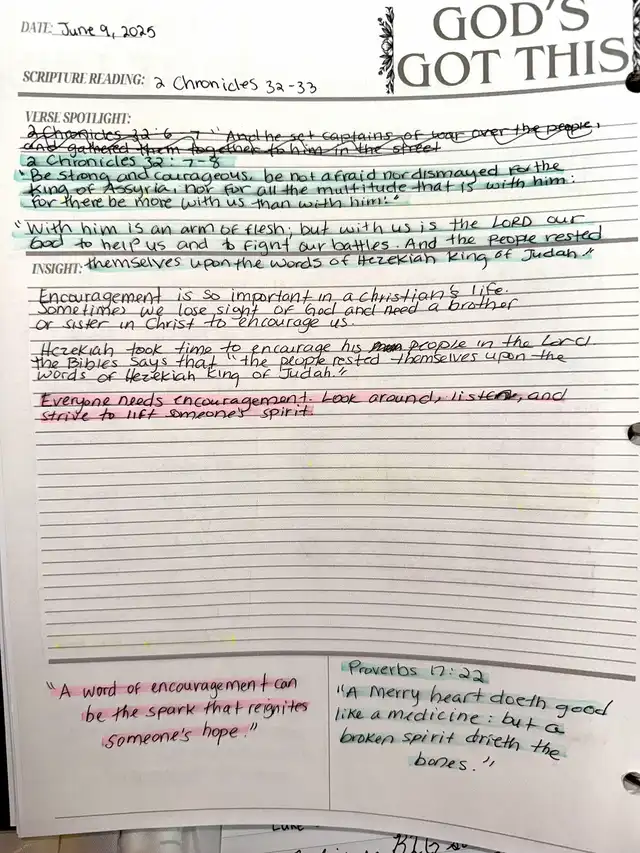 DATE: June 9, 2025
GOD'S
GOT THIS
SCRIPTURE READING: 2 Chronicles 32-33
VERSE SPOTLIGHT:
2 Chronicles 32:6-7 "And he set captains of war over the people,
and gathered them together to him in the street
2 Chronicles 32:7-8
"Be strong and courageous, be not afraid nor dismayed for the
King of Assyria, nor for all the multitude that is with him:
for there be more with us than with him:"
"With him is an arm of flesh; but with us is the LORD our
God to help us and to fight our battles. And the people rested
INSIGHT: themselves upon the words of Hezekiah King of Judah."
Encouragement is so important in a christian's life.
Sometimes we lose sight of God and need a brother
or sister in Christ to encourage us.
Hezekiah took time to encourage his people in the Lord
the Bibles says that "the people rested themselves upon the
words of Hezekiah King of Judah."
Everyone needs encouragement. Look around, listen, and
strive to lift someone's spirit.
"A word of encouragement can
be the spark that reignites
someone's hope."
Proverbs 17:22
"A merry heart doeth good
like a medicine: but a
broken spirit drieth the
bones."